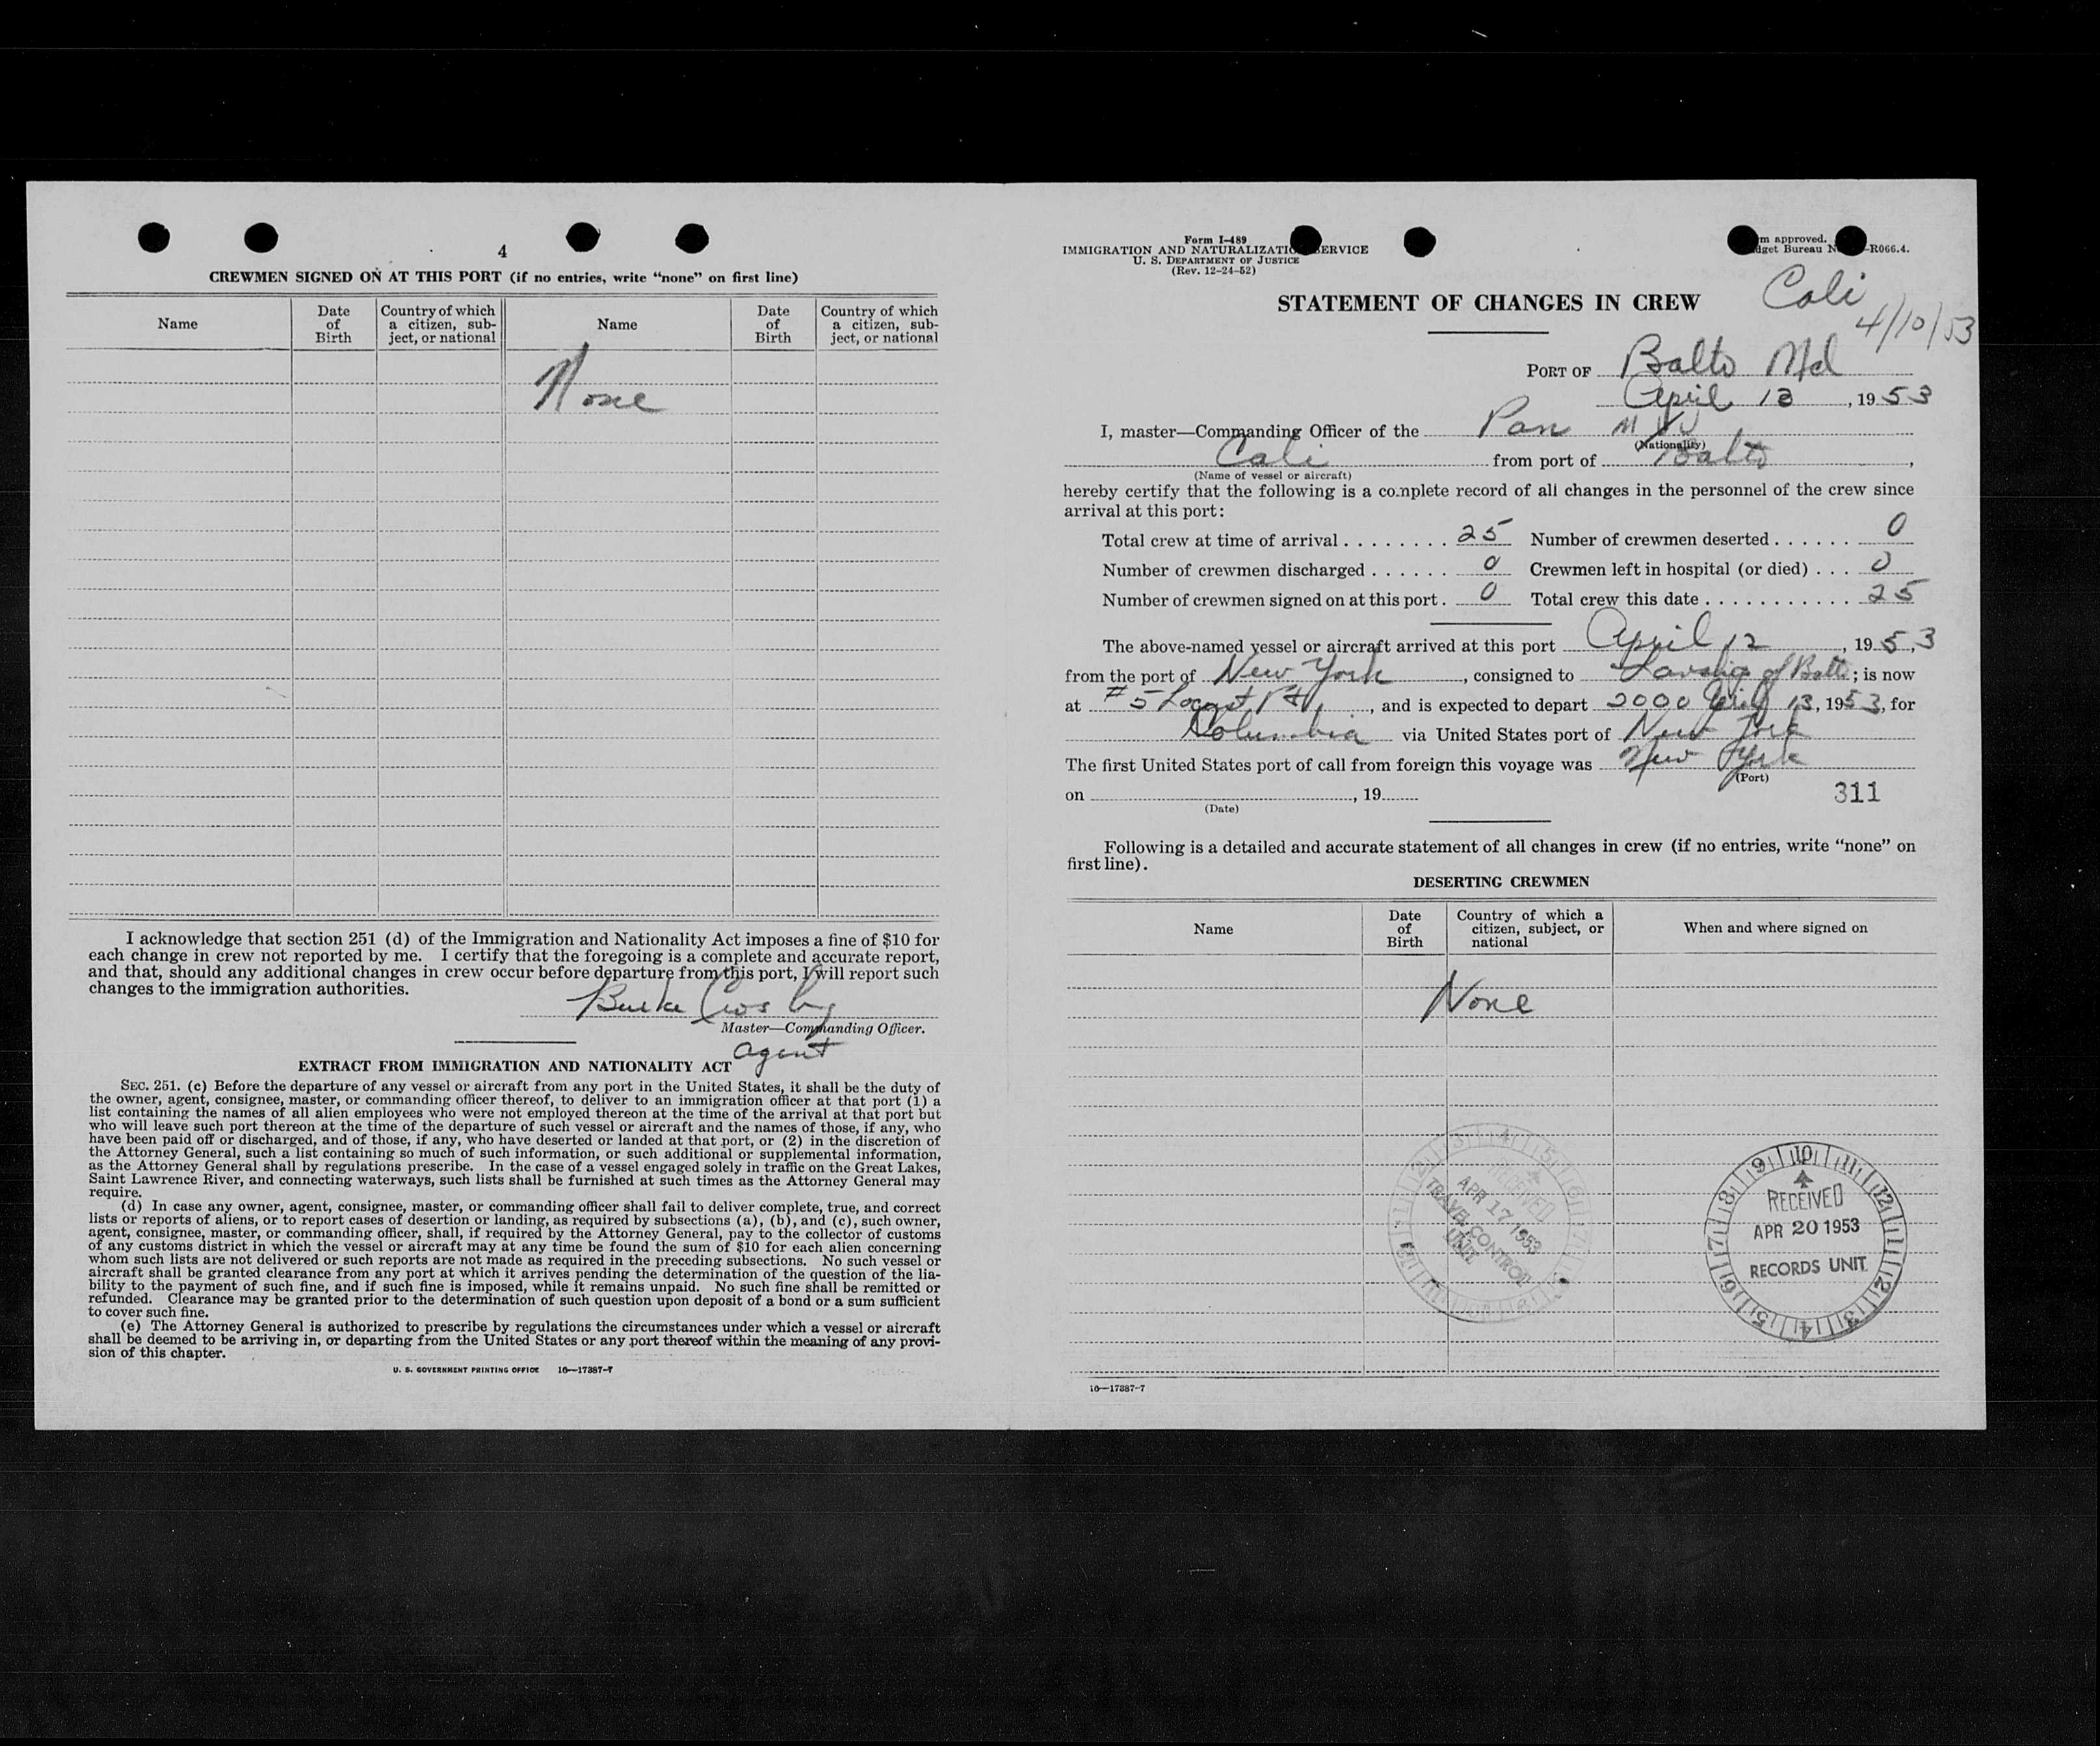 4
CREWMEN SIGNED ON AT THIS PORT (if no entries, write "none" on first line)
Name
Date of Birth
Country of which a citizen, subject, or national
Name
Date of Birth
Country of which a citizen, subject, or national
None
I acknowledge that section 251 (d) of the Immigration and Nationality Act imposes a fine of $10 for
each change in crew not reported by me. I certify that the foregoing is a complete and accurate report,
and that, should any additional changes in crew occur before departure from this port, I will report such
changes to the immigration authorities.
Burke Crosby
Master—Commanding Officer.
agent
EXTRACT FROM IMMIGRATION AND NATIONALITY ACT
SEC. 251. (c) Before the departure of any vessel or aircraft from any port in the United States, it shall be the duty of
the owner, agent, consignee, master, or commanding officer thereof, to deliver to an immigration officer at that port (1) a
list containing the names of all alien employees who were not employed thereon at the time of the arrival at that port but
who will leave such port thereon at the time of the departure of such vessel or aircraft and the names of those, if any, who
have been paid off or discharged, and of those, if any, who have deserted or landed at that port, or (2) in the discretion of
the Attorney General, such a list containing so much of such information, or such additional or supplemental information,
as the Attorney General shall by regulations prescribe. In the case of a vessel engaged solely in traffic on the Great Lakes,
Saint Lawrence River, and connecting waterways, such lists shall be furnished at such times as the Attorney General may
require.
(d) In case any owner, agent, consignee, master, or commanding officer shall fail to deliver complete, true, and correct
lists or reports of aliens, or to report cases of desertion or landing, as required by subsections (a), (b), and (c), such owner,
agent, consignee, master, or commanding officer, shall, if required by the Attorney General, pay to the collector of customs
of any customs district in which the vessel or aircraft may at any time be found the sum of $10 for each alien concerning
whom such lists are not delivered or such reports are not made as required in the preceding subsections. No such vessel or
aircraft shall be granted clearance from any port at which it arrives pending the determination of the question of the lia-
bility to the payment of such fine, and if such fine is imposed, while it remains unpaid. No such fine shall be remitted or
refunded. Clearance may be granted prior to the determination of such question upon deposit of a bond or a sum sufficient
to cover such fine.
(e) The Attorney General is authorized to prescribe by regulations the circumstances under which a vessel or aircraft
shall be deemed to be arriving in, or departing from the United States or any port thereof within the meaning of any provi-
sion of this chapter.
U. S. GOVERNMENT PRINTING OFFICE 16—17387-7
Form I-489
IMMIGRATION AND NATURALIZATIO SERVICE
U. S. DEPARTMENT OF JUSTICE
(Rev. 12-24-52)
m approved.
dget Bureau N -R066.4.
STATEMENT OF CHANGES IN CREW
Cali
4/10/53
PORT OF Balto Md
April 13, 1953
I, master—Commanding Officer of the Pan
(Nationality)
Cali from port of Balto,
(Name of vessel or aircraft)
hereby certify that the following is a complete record of all changes in the personnel of the crew since
arrival at this port:
Total crew at time of arrival ........ 25 Number of crewmen deserted ...... 0
Number of crewmen discharged ...... 0 Crewmen left in hospital (or died) ... 0
Number of crewmen signed on at this port. 0 Total crew this date ............ 25
The above-named vessel or aircraft arrived at this port April 12, 1953
from the port of New York, consigned to of Balto; is now
at #5 Locust Pt, and is expected to depart 2000 April 13, 1953, for
Columbia via United States port of New York
The first United States port of call from foreign this voyage was New York
(Port)
on , 19
(Date)
311
Following is a detailed and accurate statement of all changes in crew (if no entries, write "none" on
first line).
DESERTING CREWMEN
Name
Date of Birth
Country of which a citizen, subject, or national
When and where signed on
None
RECEIVED
APR 17 1953
TRAVEL CONTROL
UNIT
9 10 11 12 1 2 3 4 5 6 7 8
RECEIVED
APR 20 1953
RECORDS UNIT
16—17387-7